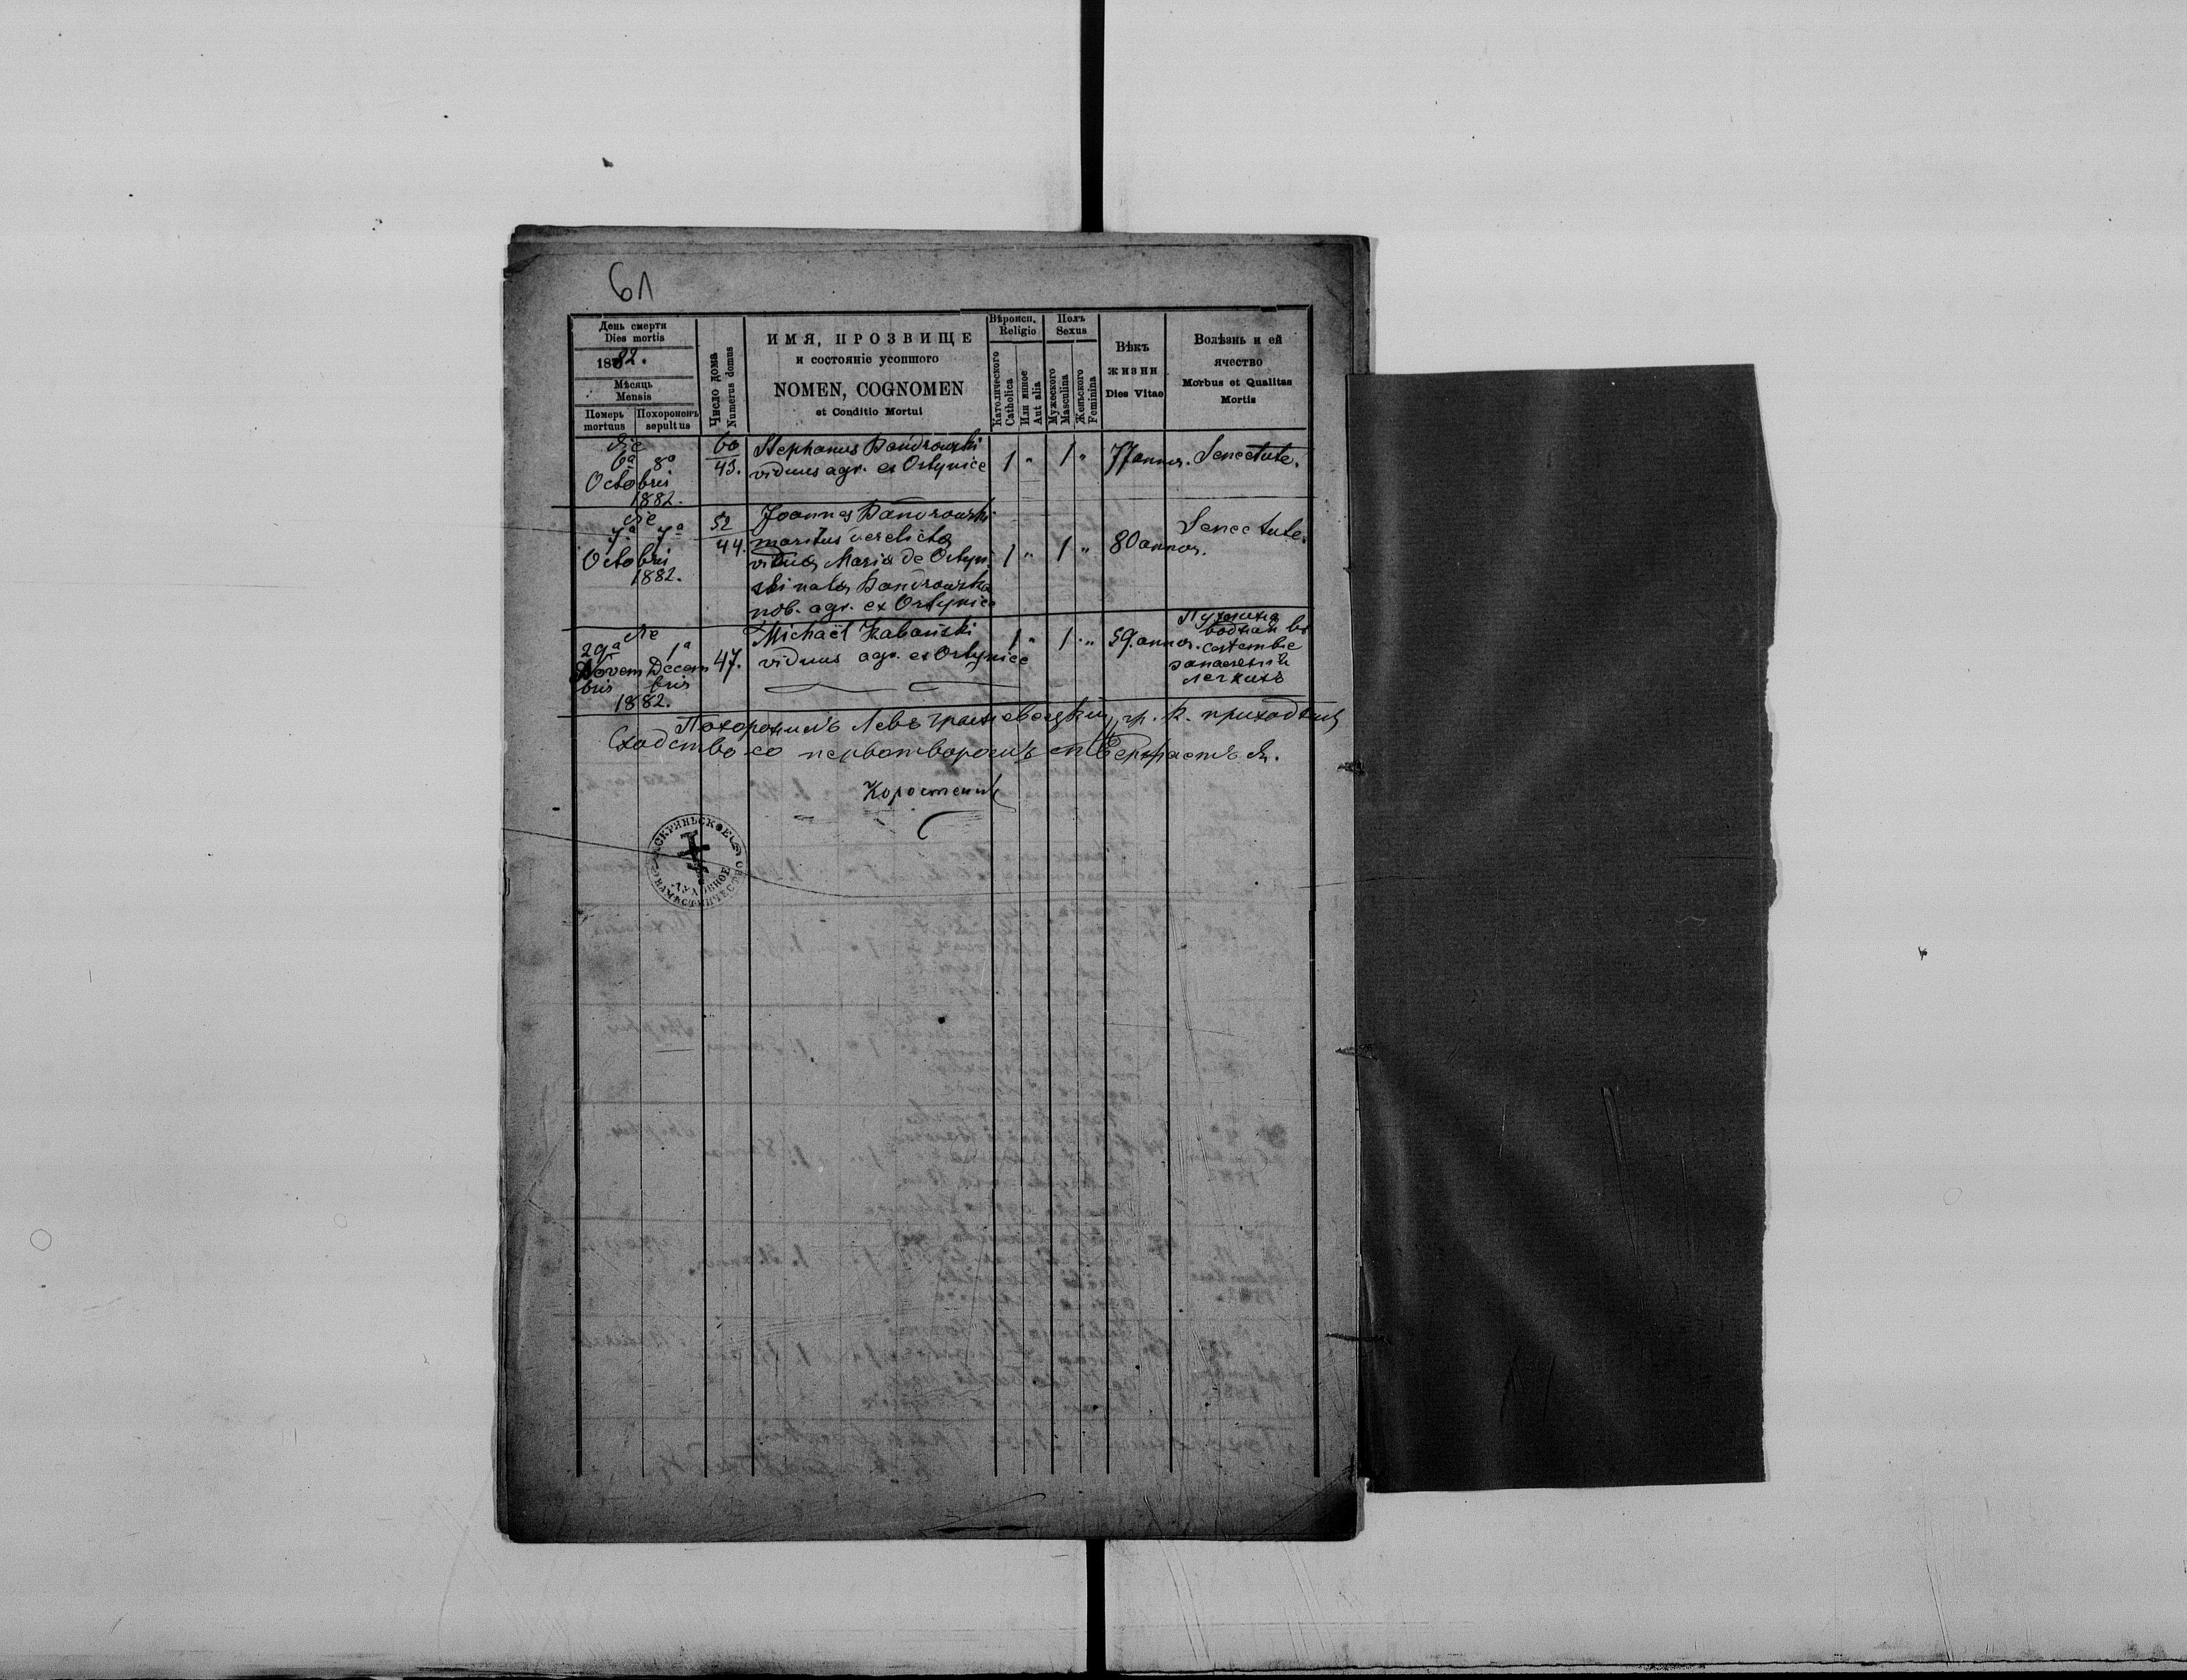 61
День смерти
Dies mortis
1882.
Мѣсяць
Mensis
Померъ
mortuus
Похороненъ
sepultus
Число дома
Numerus domus
ИМЯ, ПРОЗВИЩЕ
и состояніе усопшого
NOMEN, COGNOMEN
et Conditio Mortui
Вѣроисп.
Religio
Католического
Catholica
Или иное
Aut alia
Полъ
Sexus
Мужеского
Masculina
Женьского
Feminina
Вѣкъ
жизни
Dies Vitae
Болѣзнь и ей
ячество
Morbus et Qualitas
Mortis
die
6a 8a
Octobris
1882.
60
43.
Stephanus Bandrowski
viduus agr. ex Ortynice
1 " 1 " 77 annor. Senectute.
die
7a 7a
Octobris
1882.
52
44.
Joannes Bandrowski
maritus derelicta
vidua Maria de Ortyn
ski nata Bandrowska
nob. agr. ex Ortynice
1 " 1 " 80 annor.
Senectute.
die
29a 1a
Novem Decem
bris bris
1882.
47.
Michaël Kabański
viduus agr. ex Ortynice
1 " 1 " 59. annor.
легкихъ
Похоронилъ Левъ гр. к. приходникъ
Сходство со первотворомъ ствержаетъ ся.
СКРЯНЬСКОЕ
ДУХОВНОЕ
НАМѢСТНИЧЕСТВО